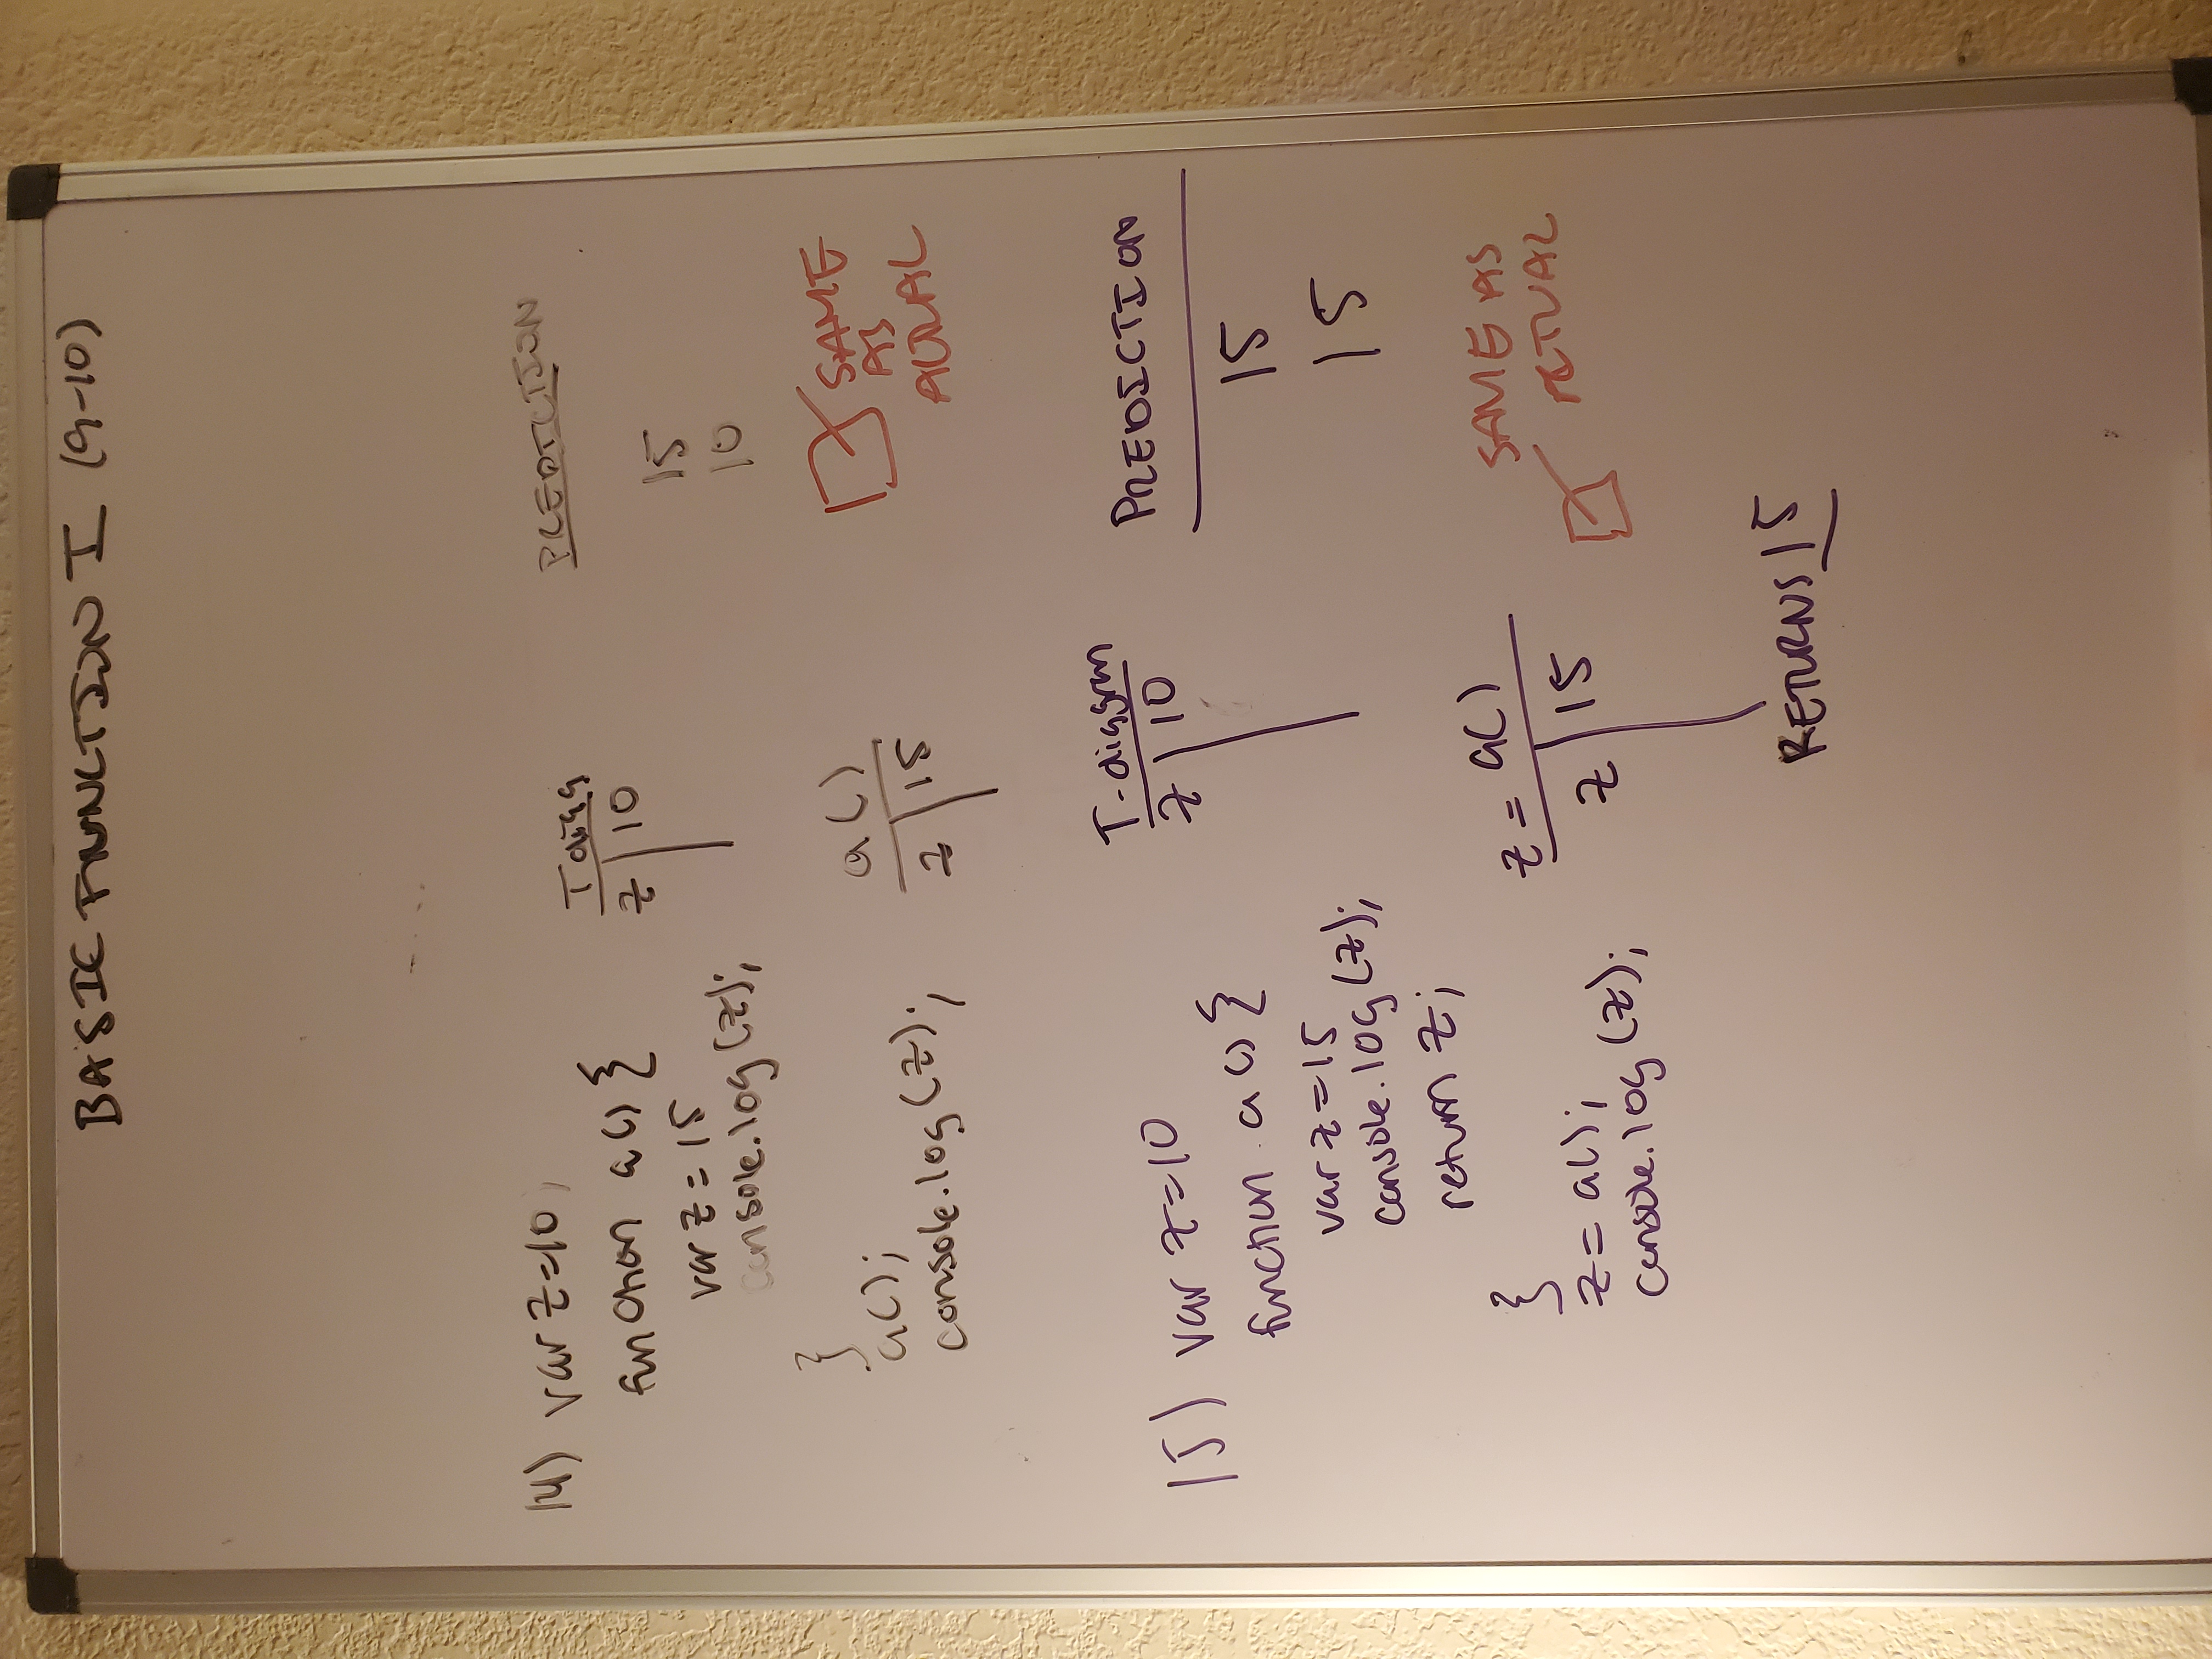 BASIC FUNNCTION I (9-10)
14) var z=10;
function a() {
var z = 15
console.log(z);
}
a();
console.log(z);
T diag
z 10
a()
z 15
PREDICTION
15
10
SAME
AS
ACTUAL
15) var z=10
function a() {
var z=15
console.log(z);
return z;
}
z = a();
console.log(z);
T-diagram
z 10
z = a()
z 15
RETURNS 15
PREDICTION
15
15
SAME AS
ACTUAL